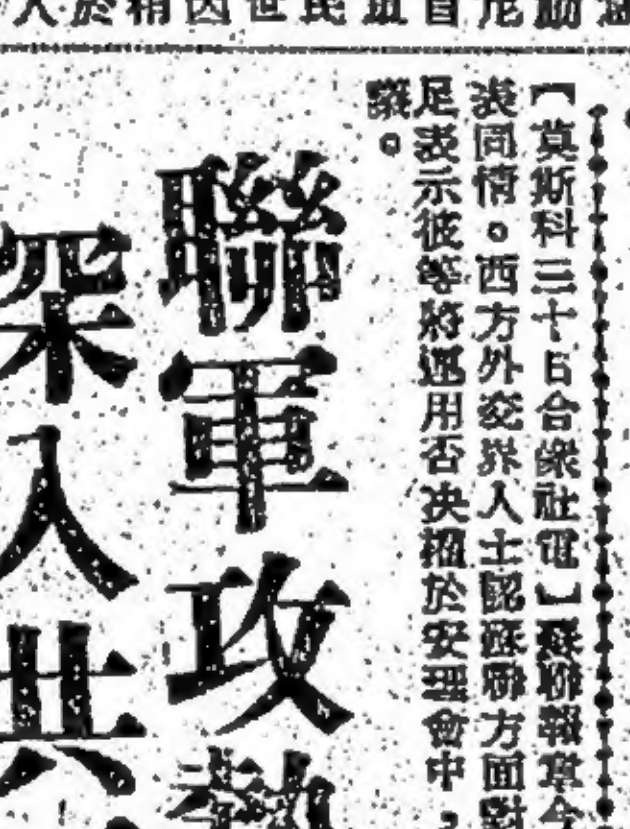 【莫斯科三十日合衆社電】蘇聯報章今
表同情。西方外交界人士認蘇聯方面對
足表示彼等將運用否决權於安理會中，
議。
聯軍攻勢
深入共